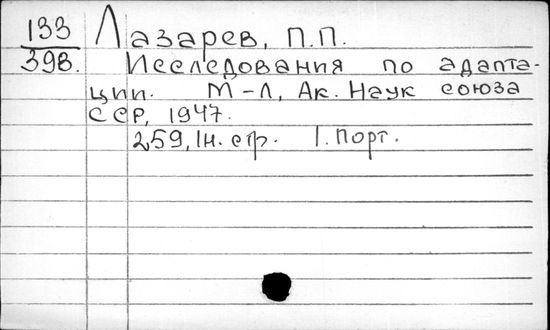 133 Лазарев, П.П.
398. Исследования по адапта-
ции. М-Л, Ак. Наук союза
ССР, 1947.
259, 1н. стр. 1. порт.